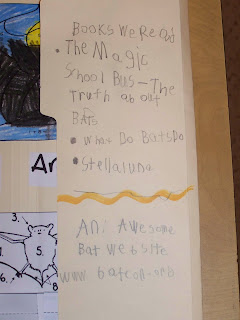 Books We Read
• The Magic
School Bus—The
Truth about
Bats
• What Do Bats Do
• Stellaluna
An! Awesome
Bat Website
An
3.
5.
6.
8